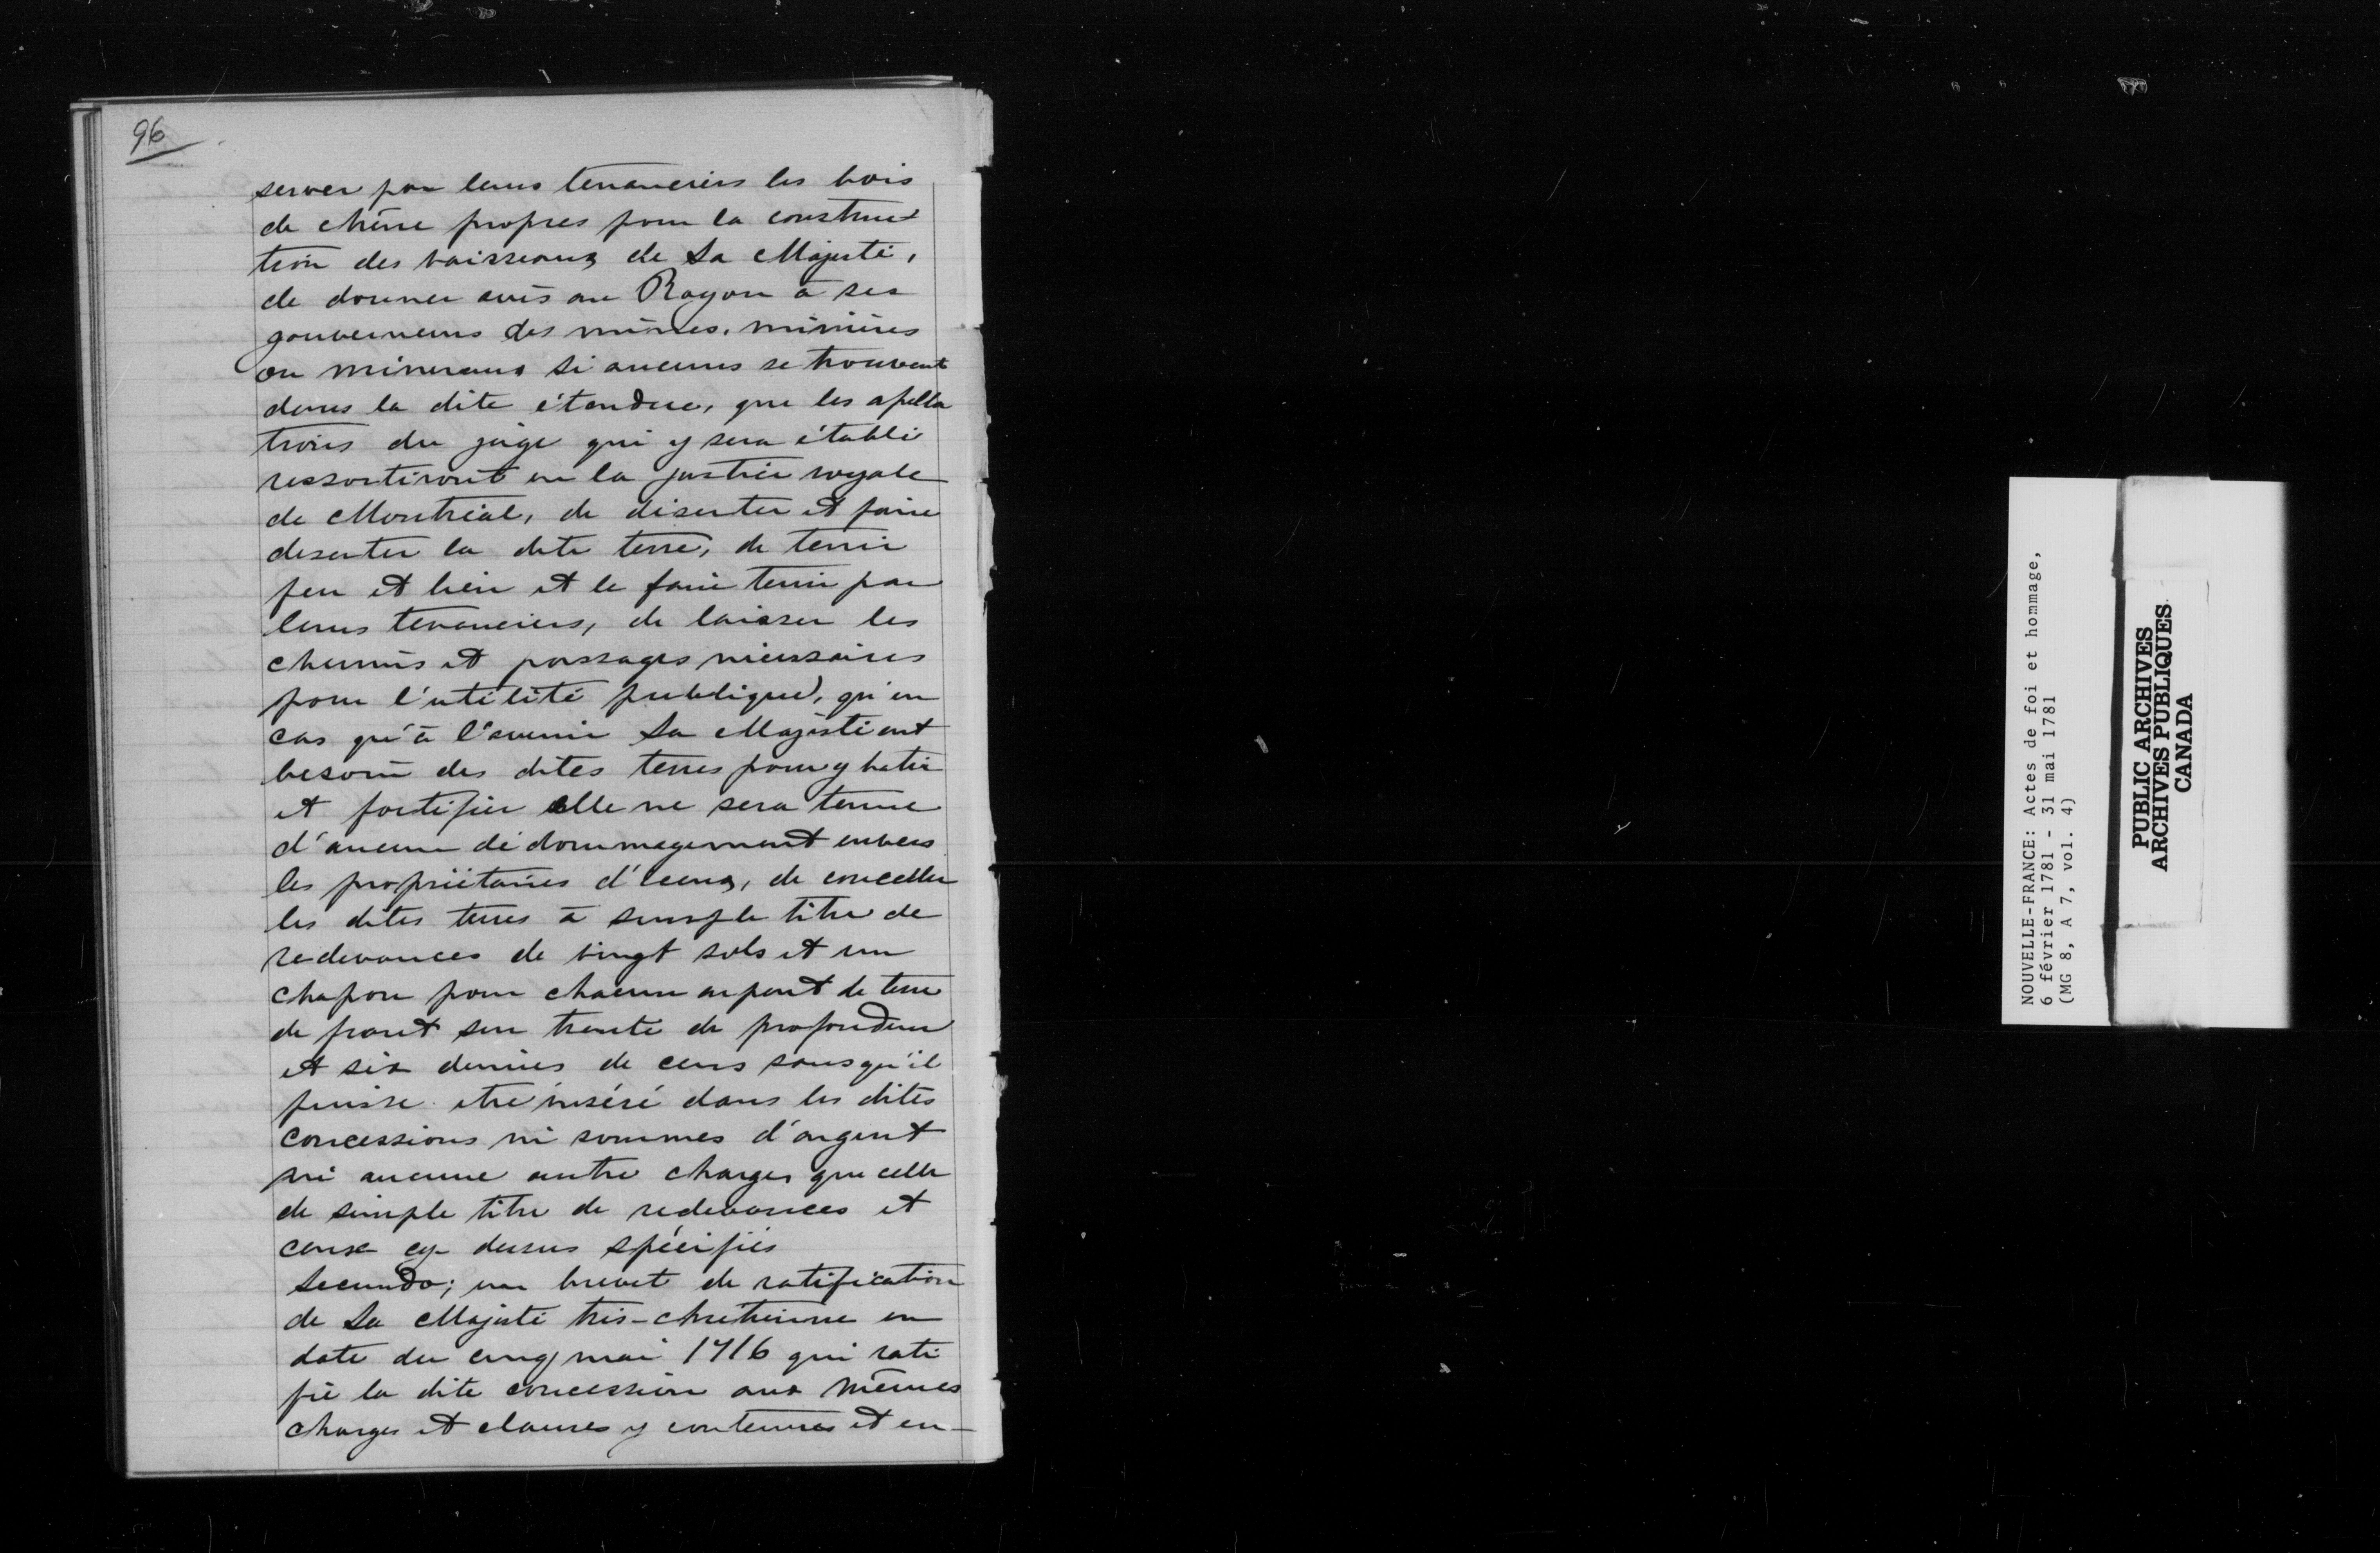 96
server par leurs tenanciers les bois
de chêne propres pour la construc
tion des vaisseaux de Sa Majesté,
de donner avis au Roy ou à ses
gouverneurs des mines, minières
ou mineraux si aucuns se trouvent
dans la dite étendue, que les apella
tions du juge qui y sera établi
ressortiront en la justice royale
de Montréal, de déserter et faire
deserter la dite terre, de tenir
feu et lieu et le faire tenir par
leurs tenanciers, de laisser les
chemins et passages nécessaires
pour l'utilité publique, qu'en
cas qu'à l'avenir Sa Majesté eut
besoin des dites terres pour y batir
et fortifier elle ne sera tenue
d'aucun dédommagement envers
les propriétaires d'iceux, de conceder
les dites terres à simple titre de
redevances de vingt sols et un
chapon pour chacun arpent de terre
de front sur trente de profondeur
et six deniers de cens sans qu'il
puisse etre inséré dans les dites
concessions ni sommes d'argent
ni aucune autre charges que celle
de simple titre de redevances et
cens cy-dessus spécifiés
secundo; un brevet de ratification
de Sa Majesté très-chrétienne en
date du cinq mai 1716 qui rati
fie la dite concession aux mêmes
charges et clauses y contenues et en-
NOUVELLE-FRANCE: Actes de foi et hommage,
6 février 1781 - 31 mai 1781
(MG 8, A 7, vol. 4)
PUBLIC ARCHIVES
ARCHIVES PUBLIQUES
CANADA